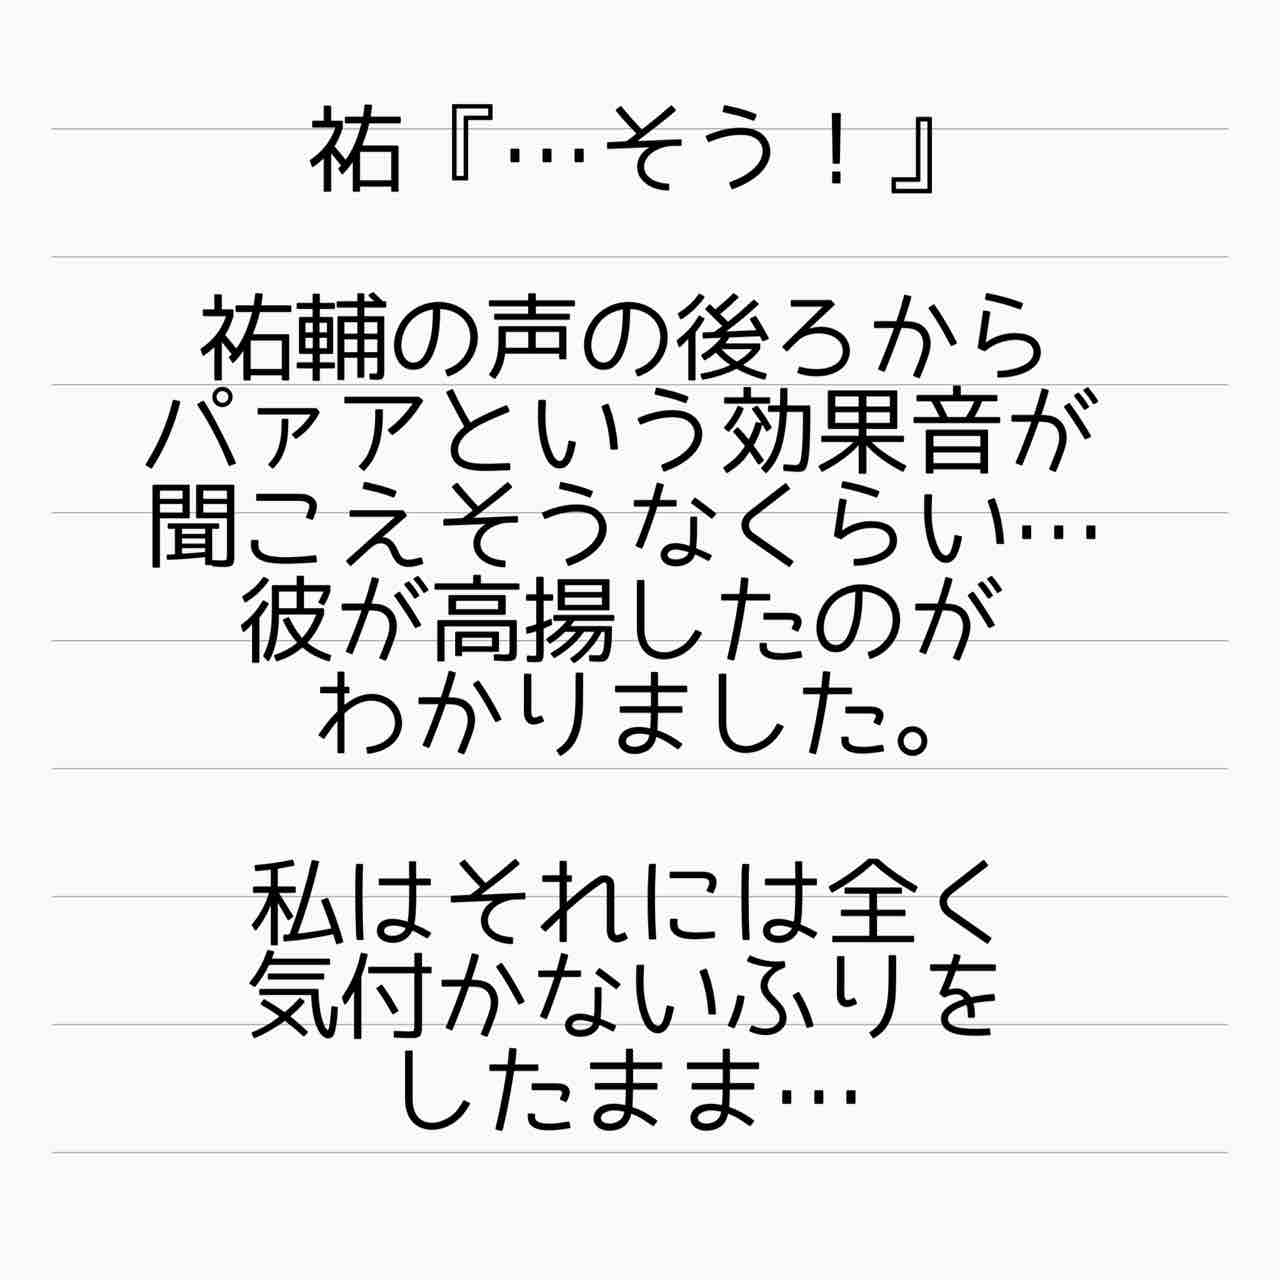 祐『…そう！』
祐輔の声の後ろから
パァアという効果音が
聞こえそうなくらい…
彼が高揚したのが
わかりました。
私はそれには全く
気付かないふりを
したまま…